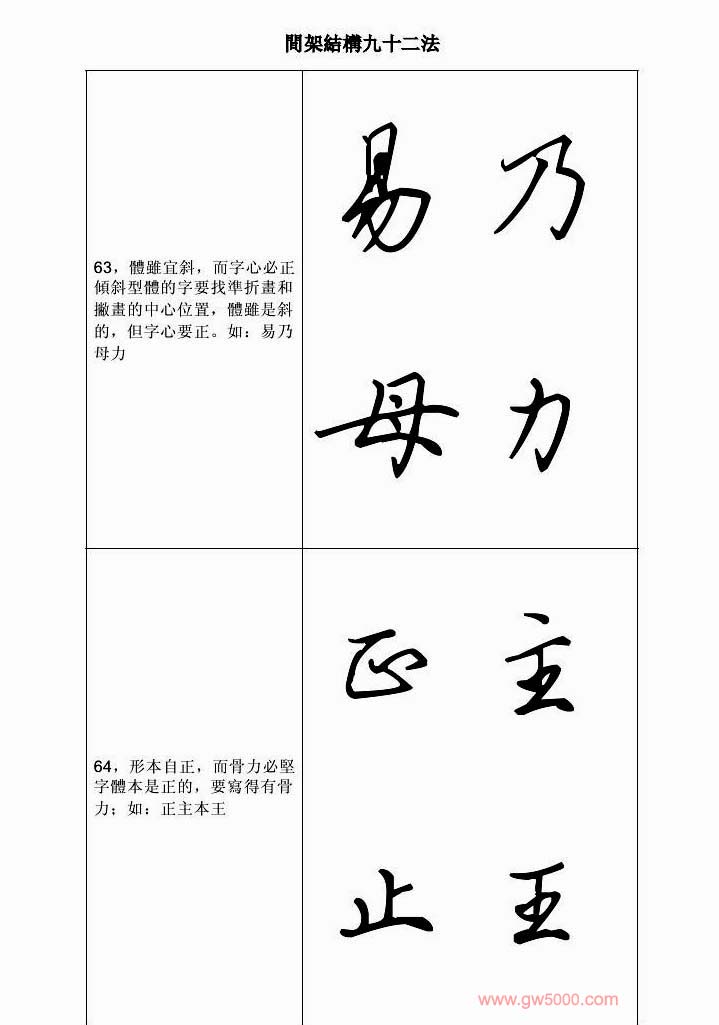 間架結構九十二法
63，體雖宜斜，而字心必正
傾斜型體的字要找準折畫和
撇畫的中心位置，體雖是斜
的，但字心要正。如：易乃
母力
易 乃
母 力
64，形本自正，而骨力必堅
字體本是正的，要寫得有骨
力；如：正主本王
正 主
止 王
www.gw5000.com